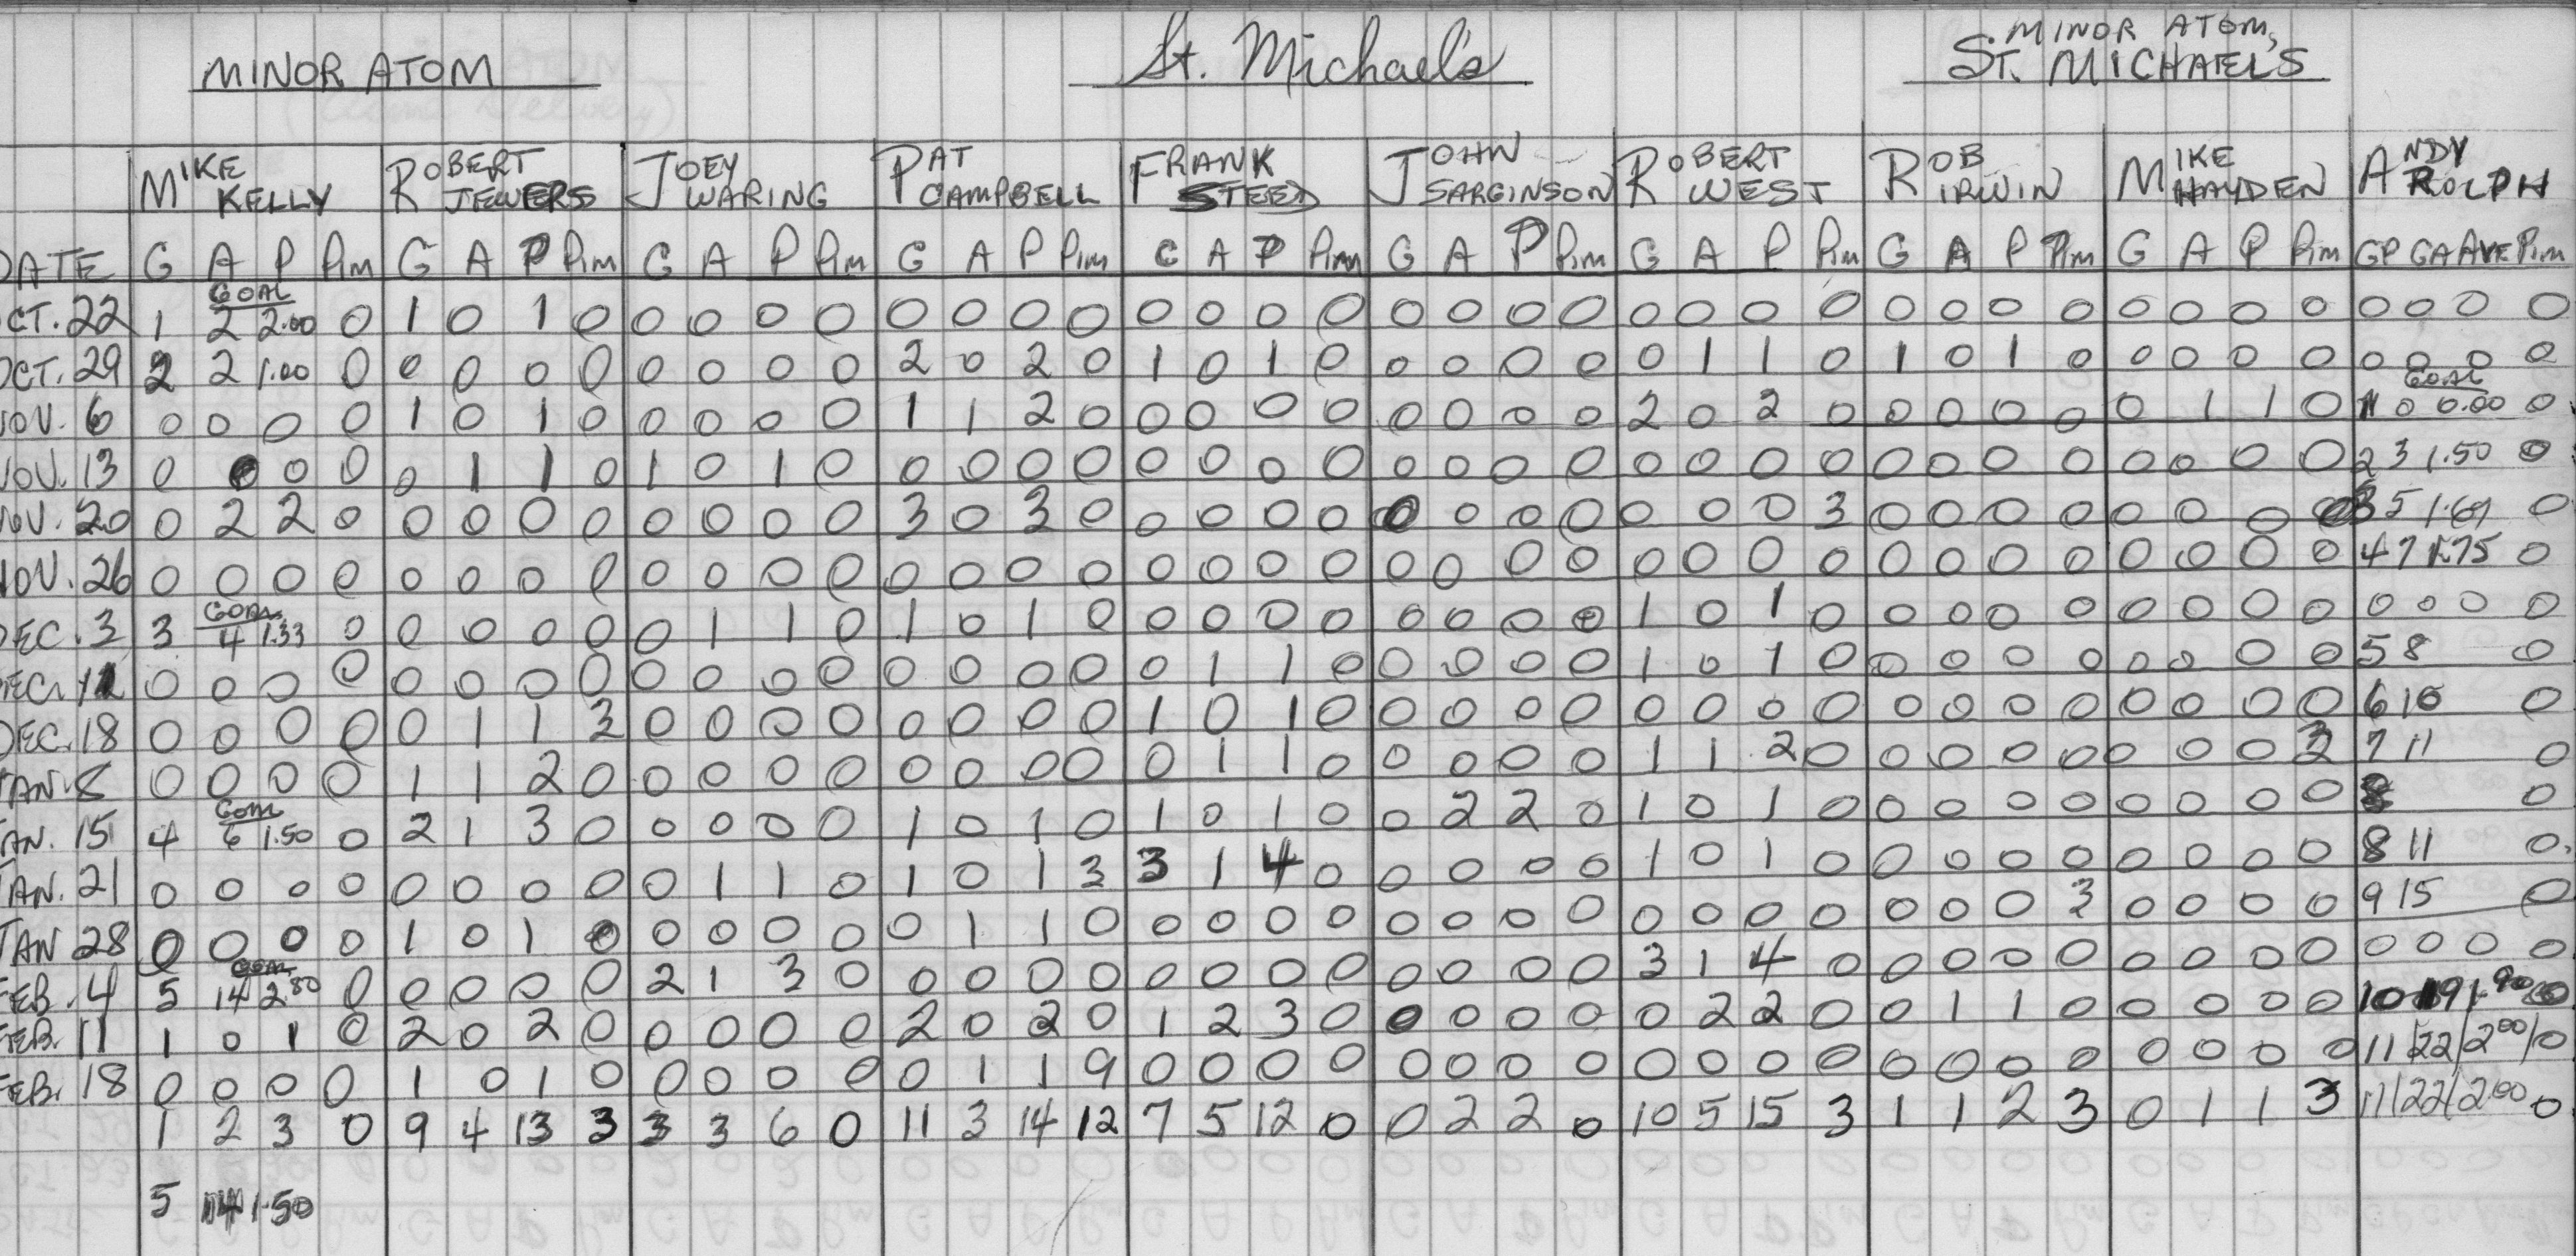 MINOR ATOM St. Michael's MINOR ATOM,
ST. MICHAEL'S
MIKE KELLY ROBERT JEWERS JOEY WARING PAT CAMPBELL FRANK STEED JOHN SARGINSON ROBERT WEST ROB IRWIN MIKE HAYDEN ANDY ROLPH
DATE G A P Pim G A P Pim G A P Pim G A P Pim G A P Pim G A P Pim G A P Pim G A P Pim G A P Pim GP GA AVE Pim
GOAL
OCT. 22 1 2 2.00 0 1 0 1 0 0 0 0 0 0 0 0 0 0 0 0 0 0 0 0 0 0 0 0 0 0 0 0 0 0 0 0 0 0 0 0 0
OCT. 29 2 2 1.00 0 0 0 0 0 0 0 0 0 2 0 2 0 1 0 1 0 0 0 0 0 0 1 1 0 1 0 1 0 0 0 0 0 0 0 0 0
GOAL
NOV. 6 0 0 0 0 1 0 1 0 0 0 0 0 1 1 2 0 0 0 0 0 0 0 0 0 2 0 2 0 0 0 0 0 0 1 1 0 1 0 0.00 0
NOV. 13 0 0 0 0 0 1 1 0 1 0 1 0 0 0 0 0 0 0 0 0 0 0 0 0 0 0 0 0 0 0 0 0 0 0 0 0 2 3 1.50 0
NOV. 20 0 2 2 0 0 0 0 0 0 0 0 0 3 0 3 0 0 0 0 0 0 0 0 0 0 0 0 3 0 0 0 0 0 0 0 0 3 5 1.67 0
NOV. 26 0 0 0 0 0 0 0 0 0 0 0 0 0 0 0 0 0 0 0 0 0 0 0 0 0 0 0 0 0 0 0 0 0 0 0 0 4 7 1.75 0
GOAL
DEC. 3 3 4 1.33 0 0 0 0 0 0 1 1 0 1 0 1 0 0 0 0 0 0 0 0 0 1 0 1 0 0 0 0 0 0 0 0 0 0 0 0 0
DEC. 0 0 0 0 0 0 0 0 0 0 0 0 0 0 0 0 0 1 1 0 0 0 0 0 1 0 1 0 0 0 0 0 0 0 0 0 5 8 0
DEC. 18 0 0 0 0 0 1 1 3 0 0 0 0 0 0 0 0 1 0 1 0 0 0 0 0 0 0 0 0 0 0 0 0 0 0 0 0 6 10 0
JAN. 8 0 0 0 0 1 1 2 0 0 0 0 0 0 0 0 0 0 1 1 0 0 0 0 0 1 1 2 0 0 0 0 0 0 0 0 3 7 11 0
GOAL
JAN. 15 4 6 1.50 0 2 1 3 0 0 0 0 0 1 0 1 0 1 0 1 0 0 2 2 0 1 0 1 0 0 0 0 0 0 0 0 0 8 0
JAN. 21 0 0 0 0 0 0 0 0 0 1 1 0 1 0 1 3 3 1 4 0 0 0 0 0 1 0 1 0 0 0 0 0 0 0 0 0 8 11 0
JAN 28 0 0 0 0 1 0 1 0 0 0 0 0 0 1 1 0 0 0 0 0 0 0 0 0 0 0 0 0 0 0 0 3 0 0 0 0 9 15 0
GOAL
FEB. 4 5 14 2.80 0 0 0 0 0 2 1 3 0 0 0 0 0 0 0 0 0 0 0 0 0 3 1 4 0 0 0 0 0 0 0 0 0 0 0 0 0
FEB. 11 1 0 1 0 2 0 2 0 0 0 0 0 2 0 2 0 1 2 3 0 0 0 0 0 0 2 2 0 0 1 1 0 0 0 0 0 10 19 1.90 0
FEB. 18 0 0 0 0 1 0 1 0 0 0 0 0 0 1 1 9 0 0 0 0 0 0 0 0 0 0 0 0 0 0 0 0 0 0 0 0 11/22/2.00/0
1 2 3 0 9 4 13 3 3 3 6 0 11 3 14 12 7 5 12 0 0 2 2 0 10 5 15 3 1 1 2 3 0 1 1 3 11/22/2.00 0
5 14 1.50